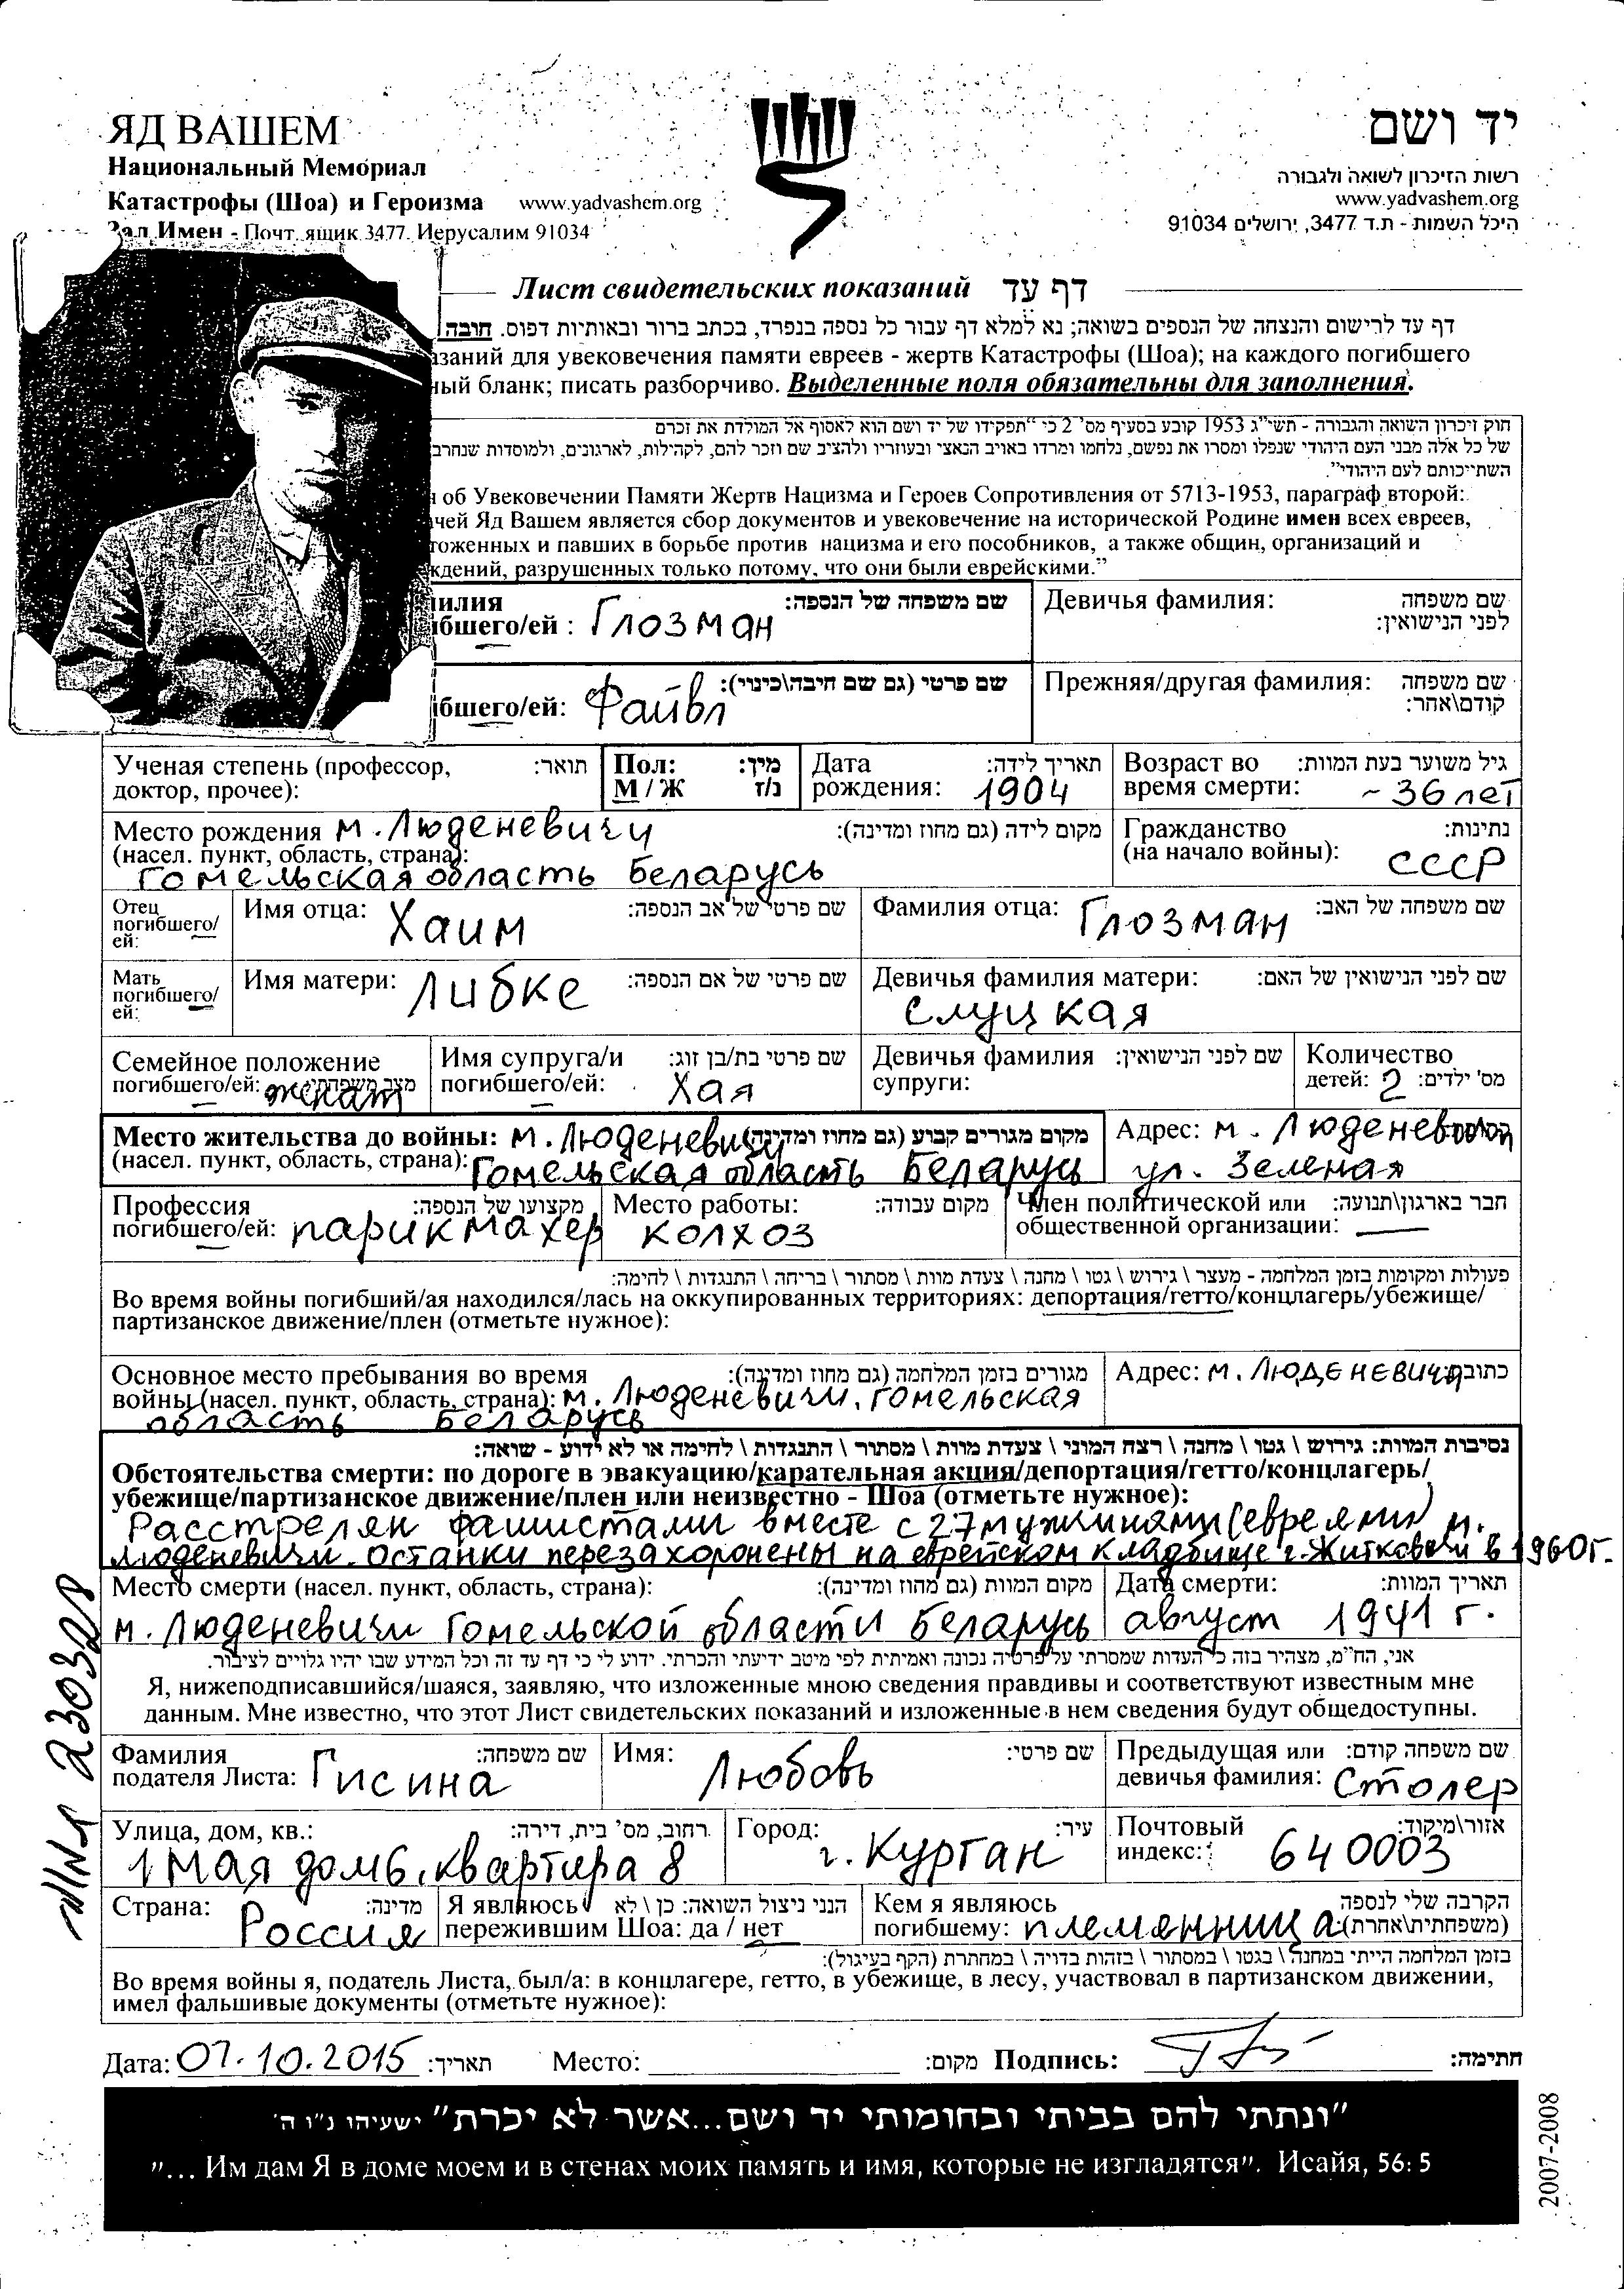 ЯД ВАШЕМ
Национальный Мемориал
Катастрофы (Шоа) и Героизма www.yadvashem.org
Зал Имен - Почт. ящик 3477, Иерусалим 91034
יד ושם
רשות הזיכרון לשואה ולגבורה
www.yadvashem.org
היכל השמות - ת.ד 3477, ירושלים 91034
Лист свидетельских показаний דף עד
דף עד לרישום והנצחה של הנספים בשואה; נא למלא דף עבור כל נספה בנפרד, בכתב ברור ובאותיות דפוס. חובה
азаний для увековечения памяти евреев - жертв Катастрофы (Шоа); на каждого погибшего
ный бланк; писать разборчиво. Выделенные поля обязательны для заполнения.
חוק זיכרון השואה והגבורה - תשי"ג 1953 קובע בסעיף מס' 2 כי "תפקידו של יד ושם הוא לאסוף אל המולדת את זכרם
של כל אלה מבני העם היהודי שנפלו ומסרו את נפשם, נלחמו ומרדו באויב הנאצי ובעוזריו ולהציב שם וזכר להם, לקהילות, לארגונים, ולמוסדות שנחרב
השתייכותם לעם היהודי".
об Увековечении Памяти Жертв Нацизма и Героев Сопротивления от 5713-1953, параграф второй:
чей Яд Вашем является сбор документов и увековечение на исторической Родине имен всех евреев,
тоженных и павших в борьбе против нацизма и его пособников, а также общин, организаций и
ждений, разрушенных только потому, что они были еврейскими."
милия שם משפחה של הנספה:
ибшего/ей : Глозман
Девичья фамилия: שם משפחה לפני הנישואין:
שם פרטי (גם שם חיבה\כינוי):
ибшего/ей: Файвл
Прежняя/другая фамилия: שם משפחה קודם\אחר:
Ученая степень (профессор, תואר:
доктор, прочее):
Пол: מין:
М / Ж נ/ז
Дата תאריך לידה:
рождения: 1904
Возраст во גיל משוער בעת המוות:
время смерти: ~36 лет
Место рождения м. Люденевичи מקום לידה (גם מחוז ומדינה):
(насел. пункт, область, страна):
Гомельская область Беларусь
Гражданство נתינות:
(на начало войны): СССР
Отец погибшего/ей:
Имя отца: Хаим שם פרטי של אב הנספה:
Фамилия отца: Глозман שם משפחה של האב:
Мать погибшего/ей:
Имя матери: Либке שם פרטי של אם הנספה:
Девичья фамилия матери: שם לפני הנישואין של האם:
Слуцкая
Семейное положение
погибшего/ей: женат מצב משפחתי:
Имя супруга/и שם פרטי בת/בן זוג:
погибшего/ей: Хая
Девичья фамилия שם לפני הנישואין:
супруги:
Количество
детей: 2 מס' ילדים:
Место жительства до войны: м. Люденевичи מקום מגורים קבוע (גם מחוז ומדינה):
(насел. пункт, область, страна): Гомельская область Беларусь
Адрес: м. Люденевичи
ул. Зеленая
Профессия מקצועו של הנספה:
погибшего/ей: парикмахер
Место работы: מקום עבודה:
колхоз
Член политической или חבר בארגון\תנועה:
общественной организации: —
פעולות ומקומות בזמן המלחמה - מעצר \ גירוש \ גטו \ מחנה \ צעדת מוות \ מסתור \ בריחה \ התנגדות \ לחימה:
Во время войны погибший/ая находился/лась на оккупированных территориях: депортация/гетто/концлагерь/убежище/
партизанское движение/плен (отметьте нужное):
Основное место пребывания во время מגורים בזמן המלחמה (גם מחוז ומדינה):
войны (насел. пункт, область, страна): м. Люденевичи, Гомельская
область Беларусь
Адрес: м. Люденевичи כתובת:
נסיבות המוות: גירוש \ גטו \ מחנה \ רצח המוני \ צעדת מוות \ מסתור \ התנגדות \ לחימה או לא ידוע - שואה:
Обстоятельства смерти: по дороге в эвакуацию/карательная акция/депортация/гетто/концлагерь/
убежище/партизанское движение/плен или неизвестно - Шоа (отметьте нужное):
Расстрелян фашистами вместе с 27 мужчинами (евреями) м.
Люденевичи. Останки перезахоронены на еврейском кладбище г. Житковичи в 1960г.
Место смерти (насел. пункт, область, страна): מקום המוות (גם מחוז ומדינה):
м. Люденевичи Гомельской области Беларусь
Дата смерти: תאריך המוות:
август 1941 г.
אני, הח"מ, מצהיר בזה כי העדות שמסרתי על פרטיה נכונה ואמיתית לפי מיטב ידיעתי והכרתי. ידוע לי כי דף עד זה וכל המידע שבו יהיו גלויים לציבור.
Я, нижеподписавшийся/шаяся, заявляю, что изложенные мною сведения правдивы и соответствуют известным мне
данным. Мне известно, что этот Лист свидетельских показаний и изложенные в нем сведения будут общедоступны.
Фамилия שם משפחה:
подателя Листа: Гисина
Имя: Любовь שם פרטי:
Предыдущая или שם משפחה קודם:
девичья фамилия: Столер
Улица, дом, кв.: רחוב, מס' בית, דירה:
1 Мая дом 6, квартира 8
Город: г. Курган עיר:
Почтовый אזור\מיקוד:
индекс: 640003
Страна: Россия מדינה:
Я являюсь הנני ניצול השואה: כן \ לא
пережившим Шоа: да / нет
Кем я являюсь הקרבה שלי לנספה
погибшему: племянница (משפחתית\אחרת):
בזמן המלחמה הייתי במחנה \ בגטו \ במסתור \ בזהות בדויה \ במחתרת (הקף בעיגול):
Во время войны я, податель Листа, был/а: в концлагере, гетто, в убежище, в лесу, участвовал в партизанском движении,
имел фальшивые документы (отметьте нужное):
Дата: 07.10.2015 תאריך: Место: מקום: Подпись: חתימה:
"ונתתי להם בביתי ובחומותי יד ושם...אשר לא יכרת" ישעיהו נ"ו ה'
"... Им дам Я в доме моем и в стенах моих память и имя, которые не изгладятся". Исайя, 56: 5
2007-2008
230328